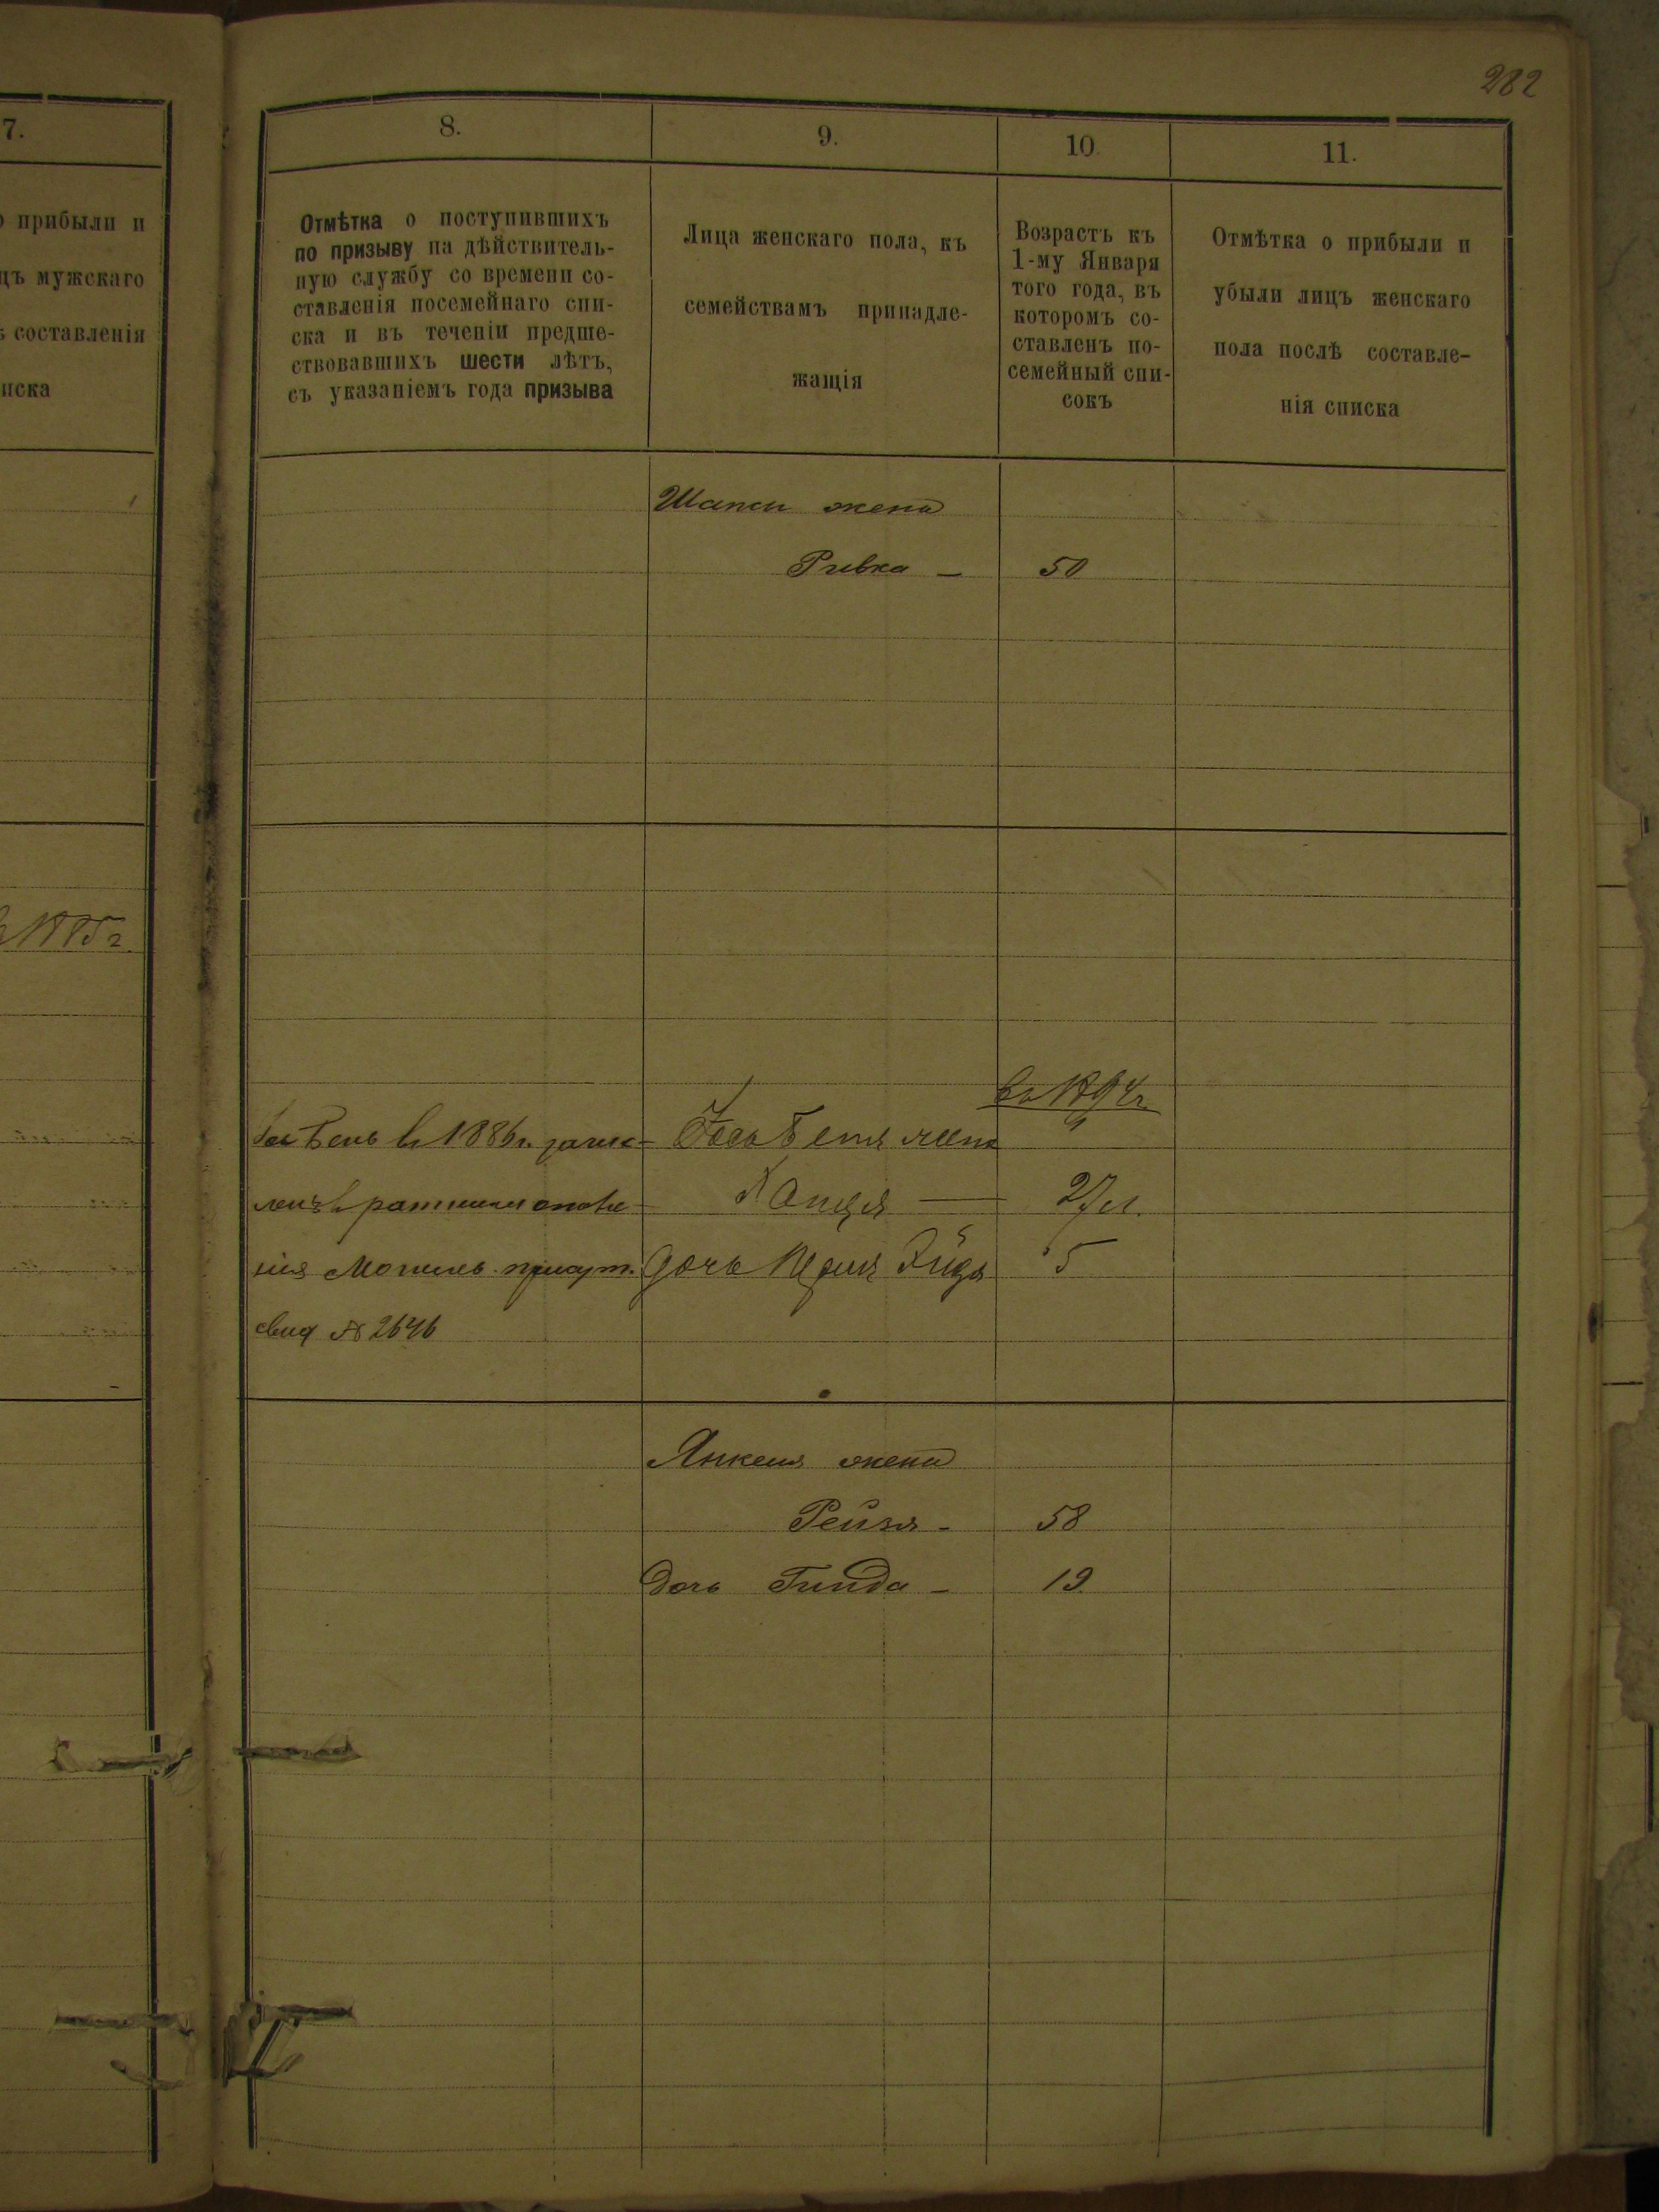 282
7.
прибыли и
цъ мужскаго
составленія
иска
1885 г
8.
9.
10.
11.
Отмѣтка о поступившихъ
по призыву на дѣйствитель-
ную службу со времени со-
ставленія посемейнаго спи-
ска и въ теченіи предше-
ствовавшихъ шести лѣтъ,
съ указаніемъ года призыва
Лица женскаго пола, къ
семействамъ принадле-
жащія
Возрастъ къ
1-му Января
того года, въ
которомъ со-
ставленъ по-
семейный спи-
сокъ
Отмѣтка о прибыли и
убыли лицъ женскаго
пола послѣ составле-
нія списка
Шапси жена
Ривка — 50
Въ 1894 г.
Бень въ 1886 г. зачис-
ленъ въ ратники ополче-
нія Могилев. присут.
свид № 2646
жена
27 л.
дочь 5
Янкеля жена
Рейзя - 58
Дочь Гинда - 19